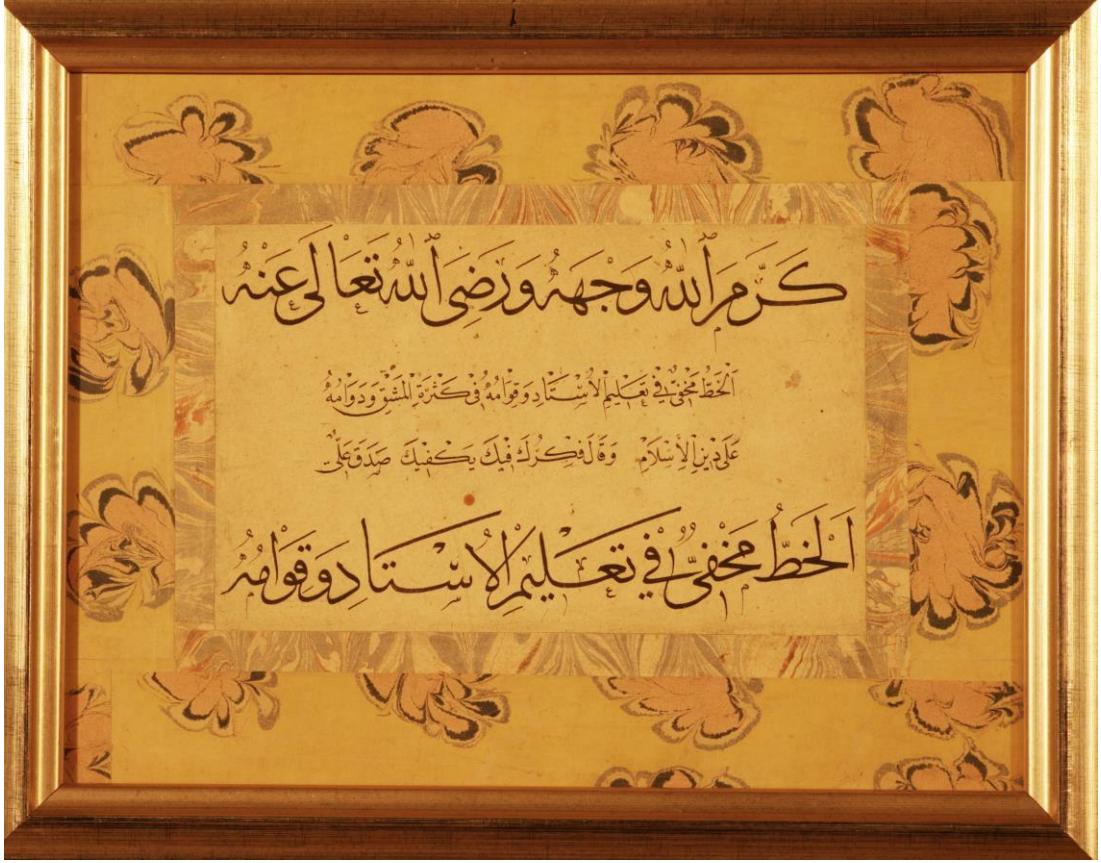 كَرَّمَ اللهُ وَجْهَهُ وَرَضِيَ اللهُ تَعَالَى عَنْهُ
اَلْخَطُّ مَخْفِيٌّ فِي تَعْلِيمِ الْاُسْتَادِ وَقِوَامُهُ فِي كَثْرَةِ الْمَشْقِ وَدَوَامُهُ
عَلَى دِينِ الْاِسْلَامِ وَقَالَ فِكْرُكَ فِيكَ يَكْفِيكَ صَدَقَ عَلِيٌّ
اَلْخَطُّ مَخْفِيٌّ فِي تَعْلِيمِ الْاُسْتَادِ وَقِوَامُهُ